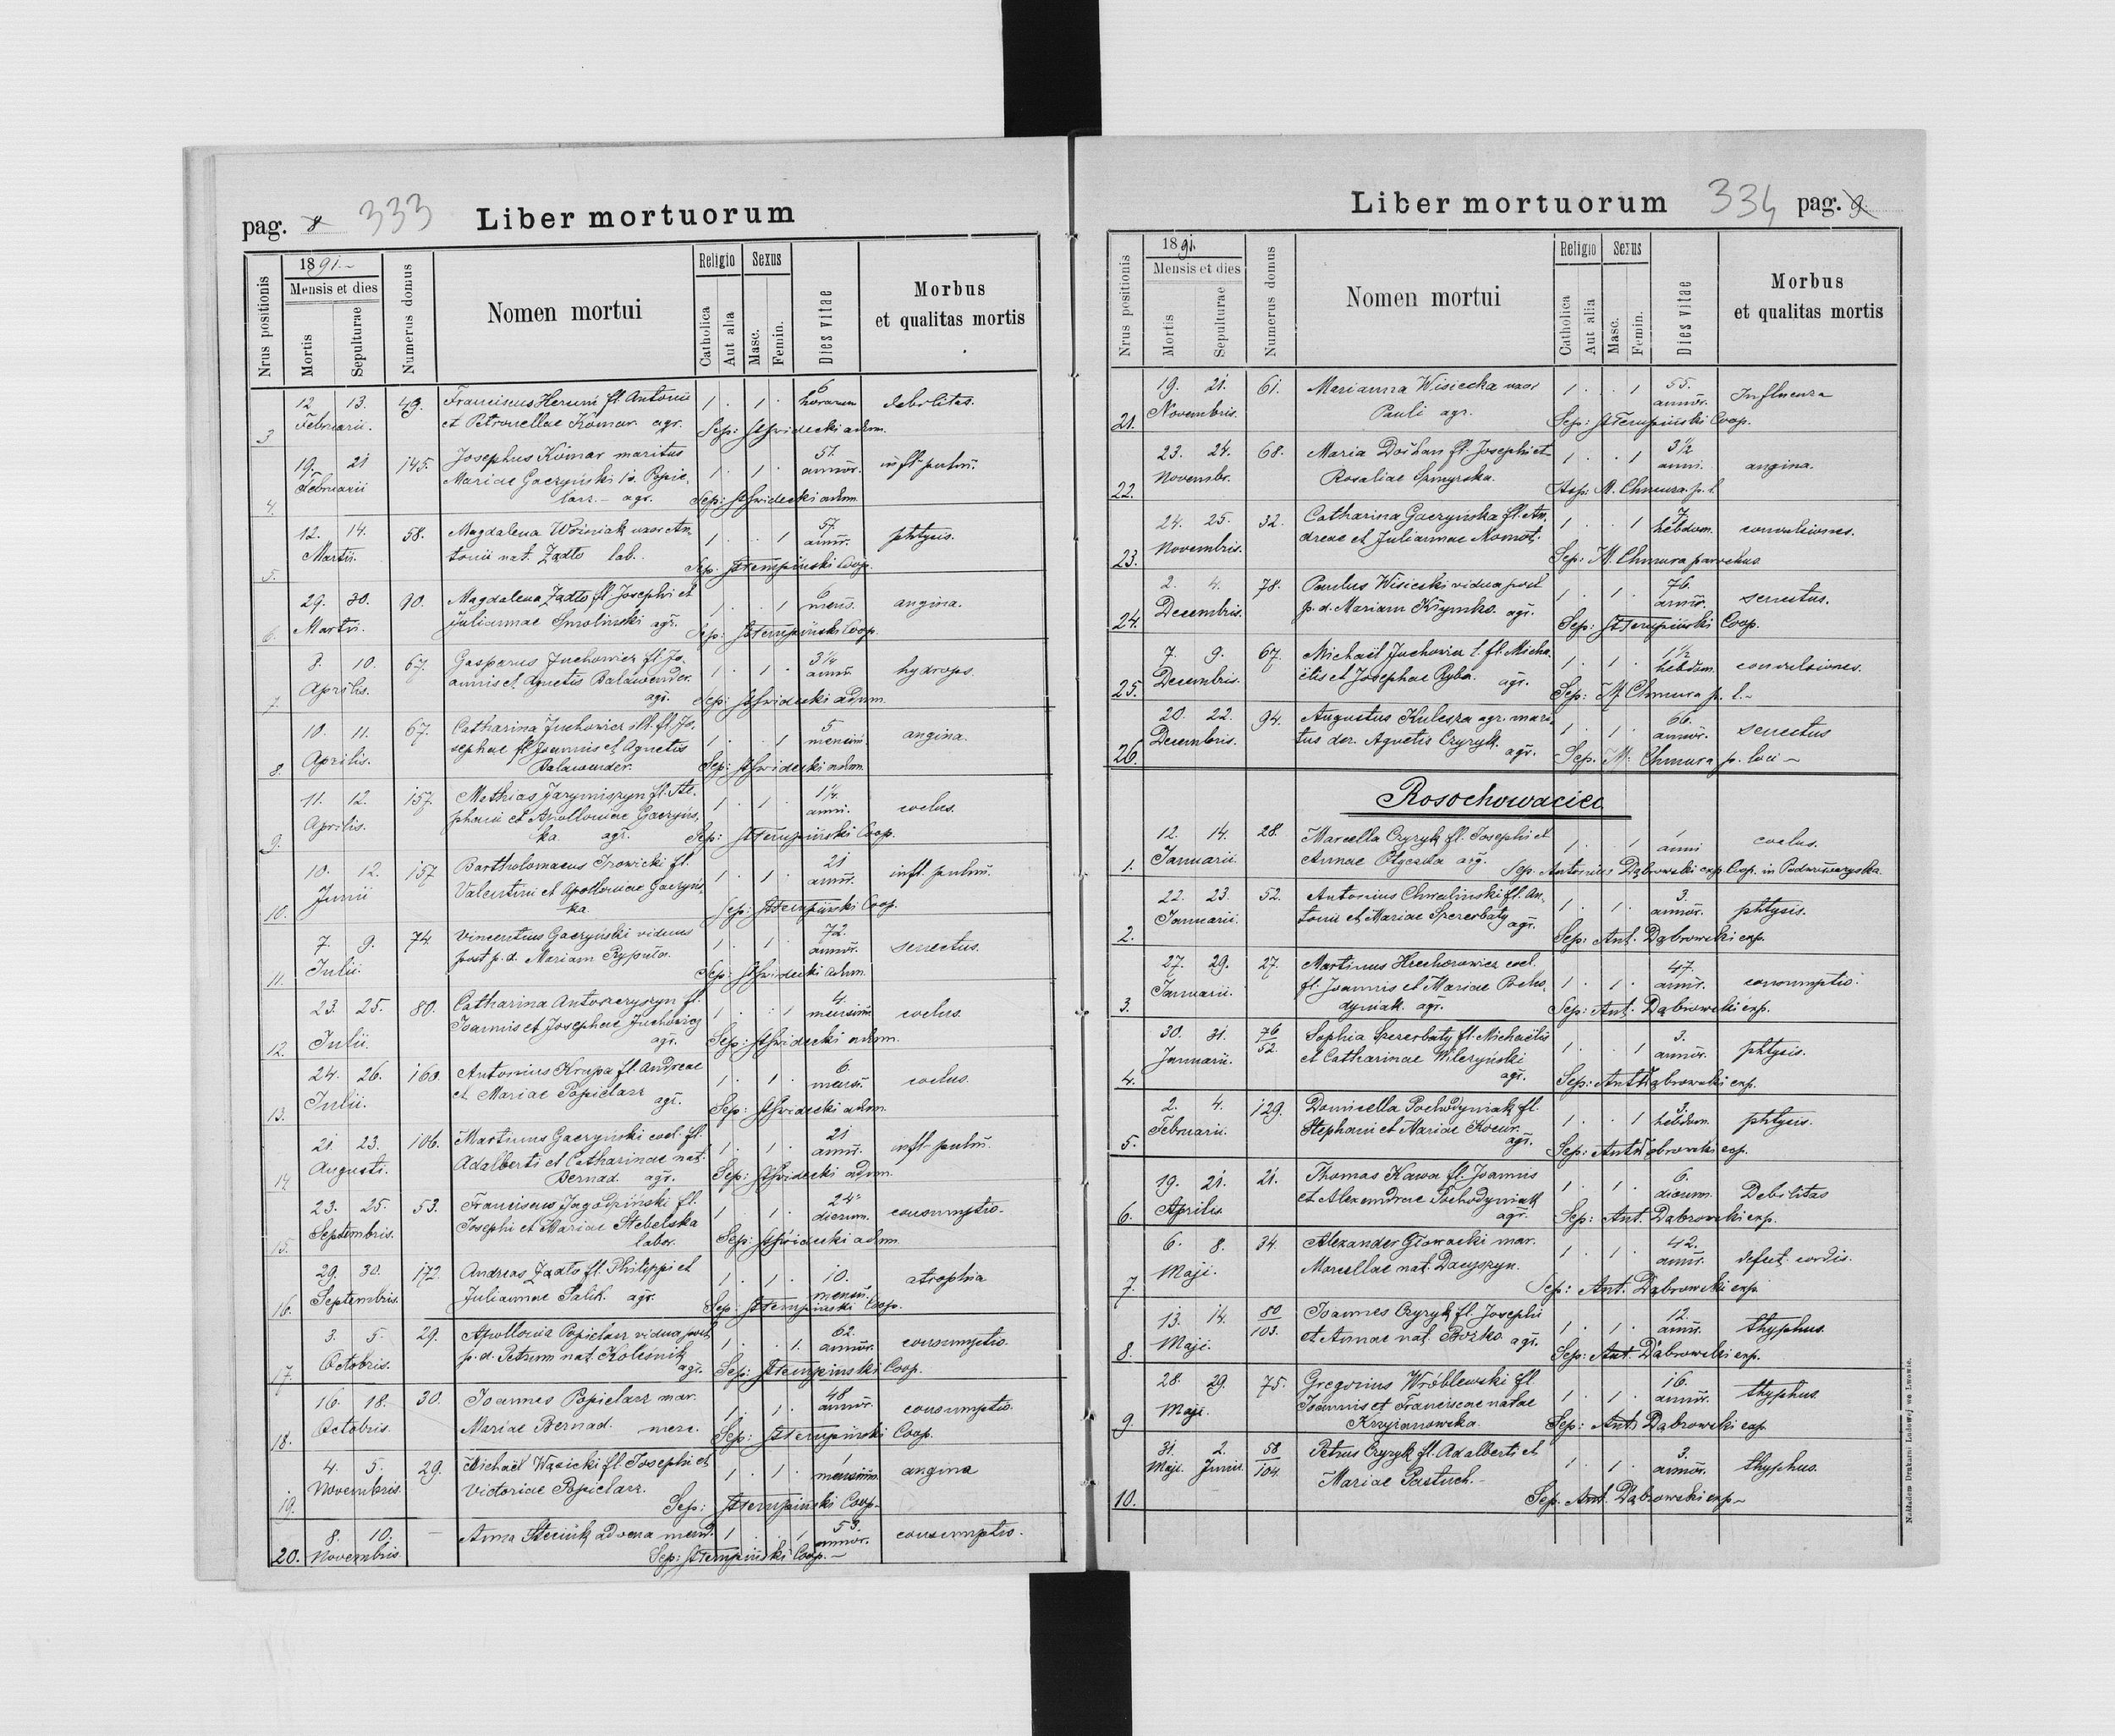 pag. 8 333 Liber mortuorum
Nrus positionis
1891.
Mensis et dies
Mortis
Sepulturae
Numerus domus
Nomen mortui
Religio
Catholica
Aut alia
Sexus
Masc.
Femin.
Dies vitae
Morbus
et qualitas mortis
12 13. 49. Franciscus Herum fl. Antonii 1 . 1 . 6 horarum debilitas.
3 Februarii. et Petronellae Komar agr. Sep: adm.
19. 21 145. Josephus Komar maritus 1 . 1 . 57. annor. infl. pulm.
Februarii Mariae Gaczyński
4. agr. Sep: adm.
12. 14. 58. Magdalena Woźniak uxor An, 1 . . 1 57. annor. phtysis.
5. Martii. tonii nat. Żądło lab. Sep: Stempiński Coop.
29. 30. 90. Magdalena Żądło fl Josephi et 1 . . 1 6 mens. angina.
6. Martii. Juliannae Smoliński agr. Sep: Stempiński Coop.
8. 10. 67. Gasparus Juchowicz fl. Jo, 1 . 1 . 3 1/4 anni hydrops.
Aprilis. annis et Agnetis Balawender.
7. agr. Sep: adm.
10. 11. 67. Catharina Juchowicz ill. fl. Jo, 1 . . 1 5 mensium. angina.
Aprilis. sephae fl Joannis et Agnetis
8. Balawender. Sep: adm.
11. 12. 157. Mathias Jarymiszyn fl. Ste, 1 . 1 . 1 1/4. anni. coelus.
Aprilis. phani et Apolloniae Gaczyńs,
9. ka. agr. Sep: Stempiński Coop.
10. 12. 157 Bartholomaeus Irowicki fl. 1 . 1 . 21 annor. infl. pulm.
Junii Valentini et Apolloniae Gaczyńs,
10. ka. Sep: Stempiński Coop.
7. 9. 74 Vincentius Gaczyński viduus 1 . 1 . 72. annor. senectus.
11. Julii. post p. d. Mariam Ryputa. Sep: adm.
23. 25. 80. Catharina Antoszczyszyn fl. 1 . . 1 4. mensium. coelus.
Julii. Joannis et Josephae Juchowicz
12. agr. Sep: adm.
24. 26. 160. Antonius Krupa fl. Andreae 1 . 1 . 6. mens. coelus.
13. Julii. et Mariae Popielarz agr. Sep: adm.
21. 23. 106. Martinus Gaczyński coel. fl. 1 . 1 . 21 annor. infl. pulm.
Augusti. Adalberti et Catharinae nat.
14 Bernad. agr. Sep: adm.
23. 25. 53. Franciscus Jagodziński fl. 1 . 1 . 24 dierum. consumptio.
Septembris. Josephi et Mariae Stebelska
15. labor. Sep: adm.
29. 30. 172. Andreas Żądło fl. Philippi et 1 . 1 . 10. mensi. atrophia
16. Septembris. Juliannae Salik. agr. Sep: Stempiński Coop.
3. 5. 29. Apollonia Popielarz vidua post 1 . . 1. 62. annor. consumptio.
17. Octobris. p. d. Petrum nat. Koleśnik agr. Sep: Stempiński Coop.
16. 18. 30. Joannes Popielarz mar. 1 . 1 . 48 annor. consumptio.
18. Octobris. Mariae Bernad. merc. Sep: Stempiński Coop.
4. 5. 29. Michaël Wąsicki fl. Josephi et 1 . 1 . 1 mensium. angina
19. Novembris. Victoriae Popielarz. Sep: Stempiński Coop.
8. 10. — Anna advena mend. 1 . . 1 53. annor. consumptio.
20. Novembris Sep: Stempiński Coop.
Liber mortuorum 334 pag. 9
Nrus positionis
1891.
Mensis et dies
Mortis
Sepulturae
Numerus domus
Nomen mortui
Religio
Catholica
Aut alia
Sexus
Masc.
Femin.
Dies vitae
Morbus
et qualitas mortis
19. 21. 61. Marianna Wisiecka uxor 1 . . 1 55. annor. Influenza
21. Novembris. Pauli agr. Sep: Stempiński Coop.
23. 24. 68. Maria Dożhan fl. Josephi et 1 . . 1 3 1/2 anni. angina.
22. Novembr. Rosaliae Szmyrska. M. Chmura p. l.
24. 25. 32. Catharina Gaczyńska fl. An, 1 . . 1 7 hebdom. convulsiones.
23. Novembris. dreae et Juliannae Sep: M. Chmura parochus.
2. 4. 78. Paulus Wisiecki vidua post 1 . 1 . 76. annor. senectus.
24. Decembris. p. d. Mariam Krzymko. agr. Sep: Stempiński Coop.
7. 9. 67. Michaël Juchowicz fl. Micha, 1 . 1 . 1 1/2 hebdom. convulsiones.
25. Decembris. ëlis et Josephae Ryba. agr. Sep: M. Chmura p. l.
20. 22. 94. Augustus Kulesza agr. mari, 1 . 1 . 66. annor. senectus
26. Decembris. tus der. Agnetis Czyzyk. agr. Sep. M. Chmura p. loci
Rosochowaciec
12. 14. 28. Marcella Czyzyk fl. Josephi et 1 . . 1 1 anni coelus.
1. Januarii. Annae agr. Sep. Antonius Dąbrowski exp. Coop. in Podwołoczyska
22. 23. 52. Antonius Chwaliński fl. An, 1 . 1 . 3. annor. phtysis.
2. Januarii. tonii et Mariae Szczerbaty agr. Sep: Ant. Dąbrowski exp.
27. 29. 27. Martinus Hrechorowicz coel. 1 . 1 . 47. annor. consumptio.
Januarii. fl. Joannis et Mariae Pocho,
3. dyniak. agr. Sep: Ant. Dąbrowski exp.
30. 31. 76/52. Sophia Szczerbaty fl. Michaëlis 1 . . 1 3. annor. phtysis.
Januarii. et Catharinae Wilczyński
4. agr. Sep: Ant. Dąbrowski exp.
2. 4. 129. Domicella Pochodyniak fl. 1 . . 1 3. hebdom. phtysis.
5. Februarii. Stephani et Mariae Kocur. agr. Sep: Ant. Dąbrowski exp.
19. 21. 21. Thomas Kawa fl. Joannis 1 . 1 . 6. dierum. Debilitas
6. Aprilis et Alexandrae Pochodyniak agr. Sep: Ant. Dąbrowski exp.
6. 8. 34. Alexander Głowacki mar. 1 . 1 . 42. annor. defect. cordis.
7. Maji. Marcellae nat. Daczyszyn. Sep: Ant. Dąbrowski exp.
13. 14. 80/103. Joannes Czyzyk fl. Josephi 1 . 1 . 12. annor. thyphus.
8. Maji. et Annae nat. Bozko agr. Sep: Ant. Dąbrowski exp.
28. 29. 75. Gregorius Wróblewski fl. 1 . 1 . 16. annor. thyphus.
Maji. Joannis et Franciscae natae
9 Krzyżanowska. Sep: Ant. Dąbrowski exp.
31. 2. 58/104. Petrus Czyzyk fl. Adalberti et 1 . 1 . 3. annor. thyphus.
Maji. Junii. Mariae Pastuch.
10. Sep. Ant. Dąbrowski exp
Nakładem Drukarni Ludowej we Lwowie.